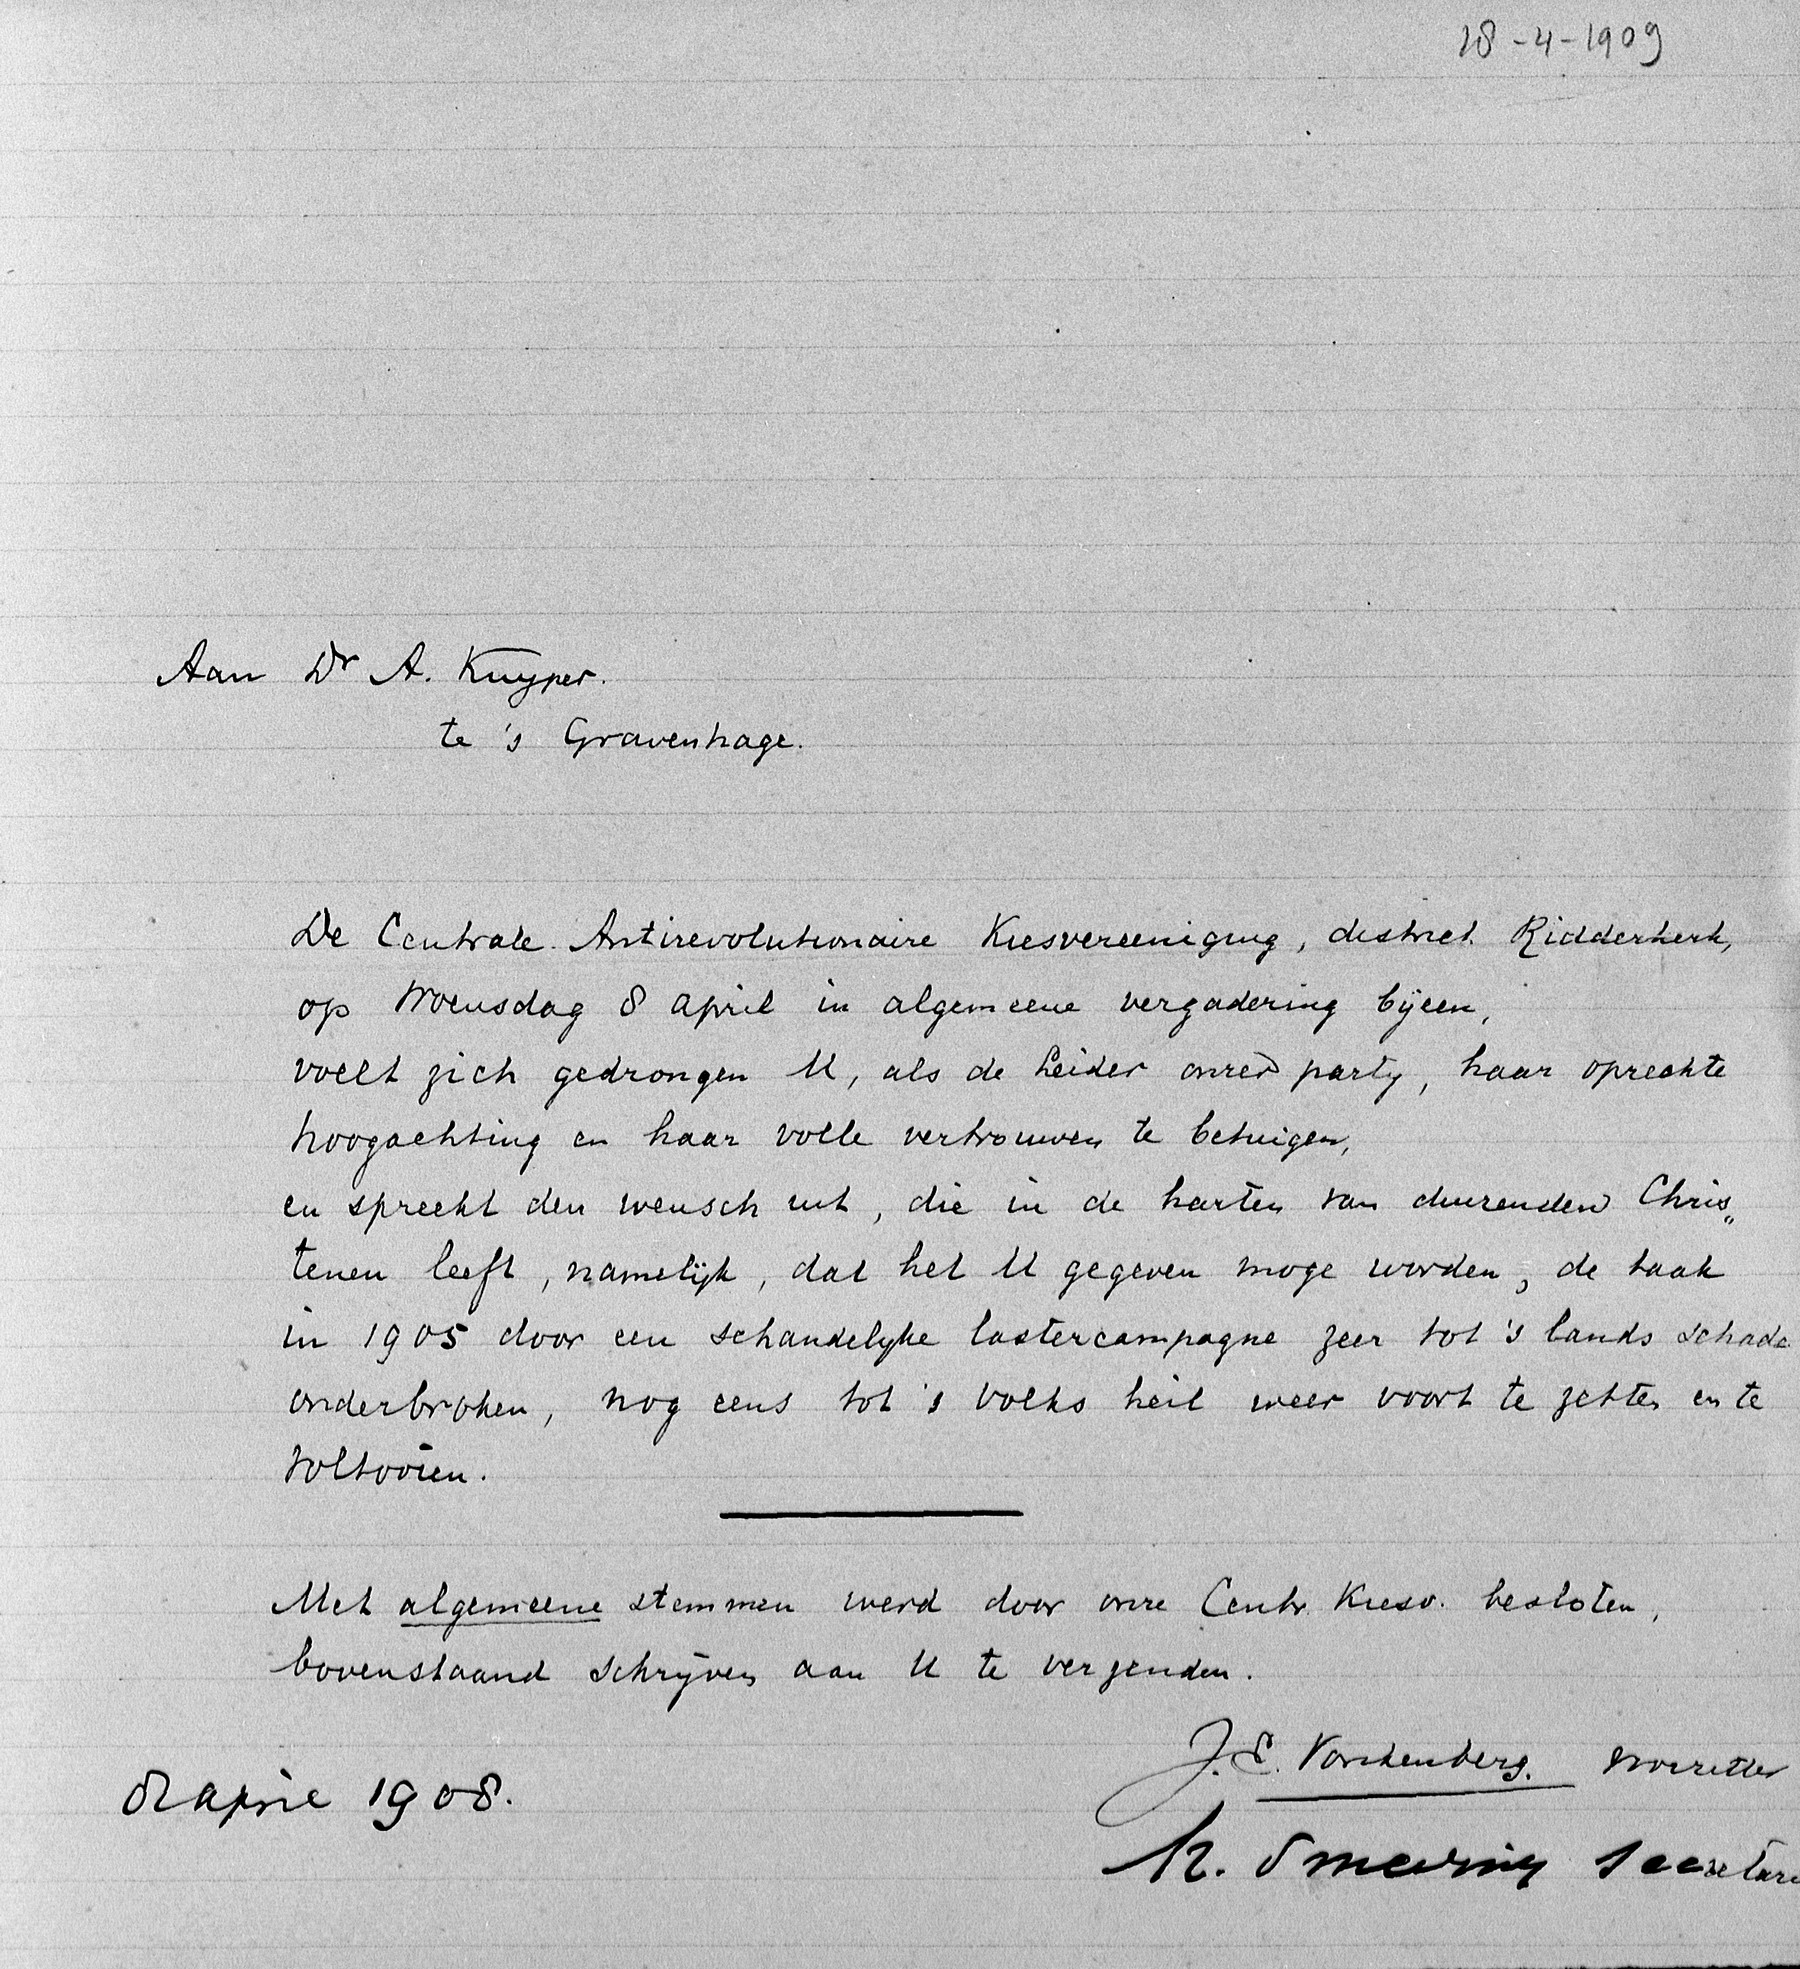 18-4-1909
Aan Dr A. Kuyper.
te 's Gravenhage.
De Centrale Antirevolutionaire Kiesvereeniging, district Ridderkerk,
op Woensdag 8 april in algemeene vergadering bijeen,
voelt zich gedrongen U, als de Leider onzer party, haar oprechte
hoogachting en haar volle vertrouwen te betuigen,
en spreekt den wensch uit, die in de harten van duizenden Chris„
tenen leeft, namelijk, dat het U gegeven moge worden, de taak
in 1905 door een schandelyke lastercampagne zeer tot 's lands schade
onderbroken, nog eens tot 's volks heil weer voort te zetten en te
voltooien.
Met algemeene stemmen werd door onze Centr. Kiesv. besloten,
bovenstaand schrijven aan U te verzenden.
J. E. Vonkenberg. Voorzitter
8 april 1908.
secretaris